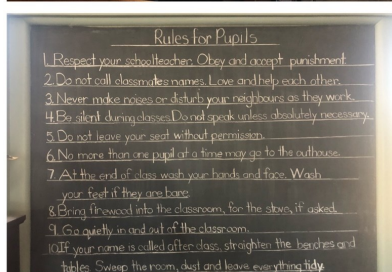 Rules for Pupils
1. Respect your schoolteacher. Obey and accept punishment.
2. Do not call classmates names. Love and help each other.
3. Never make noises or disturb your neighbours as they work.
4. Be silent during classes. Do not speak unless absolutely necessary.
5. Do not leave your seat without permission.
6. No more than one pupil at a time may go to the outhouse.
7. At the end of class wash your hands and face. Wash
your feet if they are bare.
8. Bring firewood into the classroom, for the stove, if asked.
9. Go quietly in and out of the classroom.
10. If your name is called after class, straighten the benches and
tables. Sweep the room, dust and leave everything tidy.